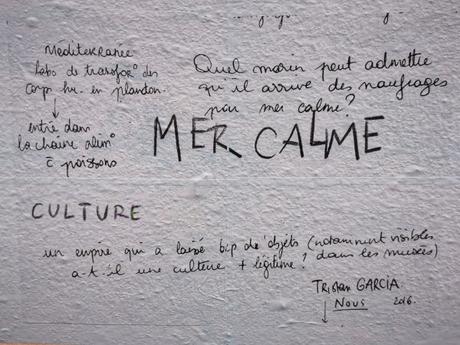 Méditerranée
Labo de transfor° des
corps hu. en plancton.
↓
entré dans
la chaîne alim°
poissons
Quel marin peut admettre
qu'il arrive des naufrages
par mer calme ?
MER CALME
CULTURE
un empire qui a laissé bcp d'objets (notamment visibles
a-t-il une culture + légitime ? dans les musées)
Tristan GARCIA.
↓ Nous 2016.